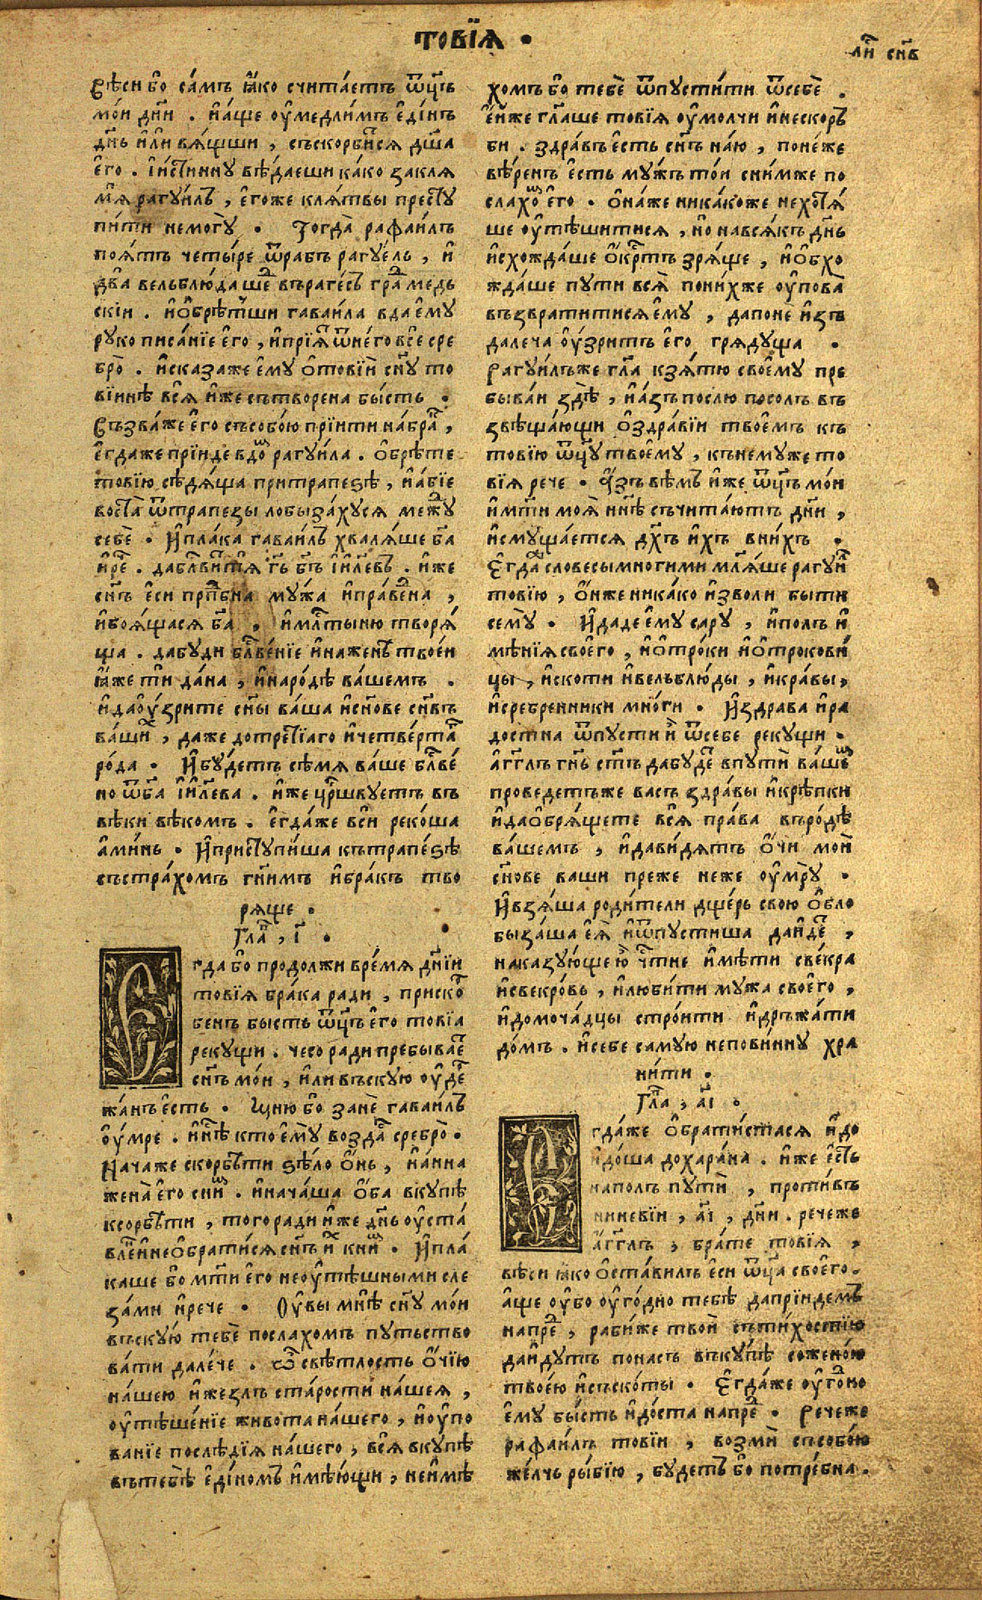 товїѧ ·
ли҃ сн҃в
вѣси бо са́мъ ꙗ҆́ко считаетъ ѿц҃ъ
мо́и дн҃и . и҆а́ще оу҆медлимъ е҆ди́нъ
дн҃ь и҆́ли вѧ́щши , съскорби́сѧ дш҃а
е҆го . і҆и́стинну вѣ́даеши ка́ко заклѧ
мѧ̀ рагуи́лъ , е҆го́же клѧ́твы престꙋ
пи́ти немогꙋ̀ . Тогда̀ рафаи́лъ
поѧ́тъ четы́ре ѿра́бъ рагуе́ль , и҆
два̀ вельблю́да ше въраге́съ гра́ медь
скїи . и҆ѻ҆брѣ́тши гаваи́ла вда е҆мꙋ
рꙋко писа́нїе е҆го , и҆прїѧ̀ ѿне́го всѐ сре
бро̀ . и҆сказа́же е҆мꙋ ѻ҆то́вїи сн҃ꙋ то
вїиннѣ всѧ̀ и҆́же сътворена бы́сть .
Възва́же е҆го съсобо́ю прїити на́бра ,
е҆гда́же прїи́де вдо́ рагуи́ла . ѻ҆брѣ́те
товїю сѣдѧ́ща притрапе́зѣ , и҆а́бїе
воста̀ ѿтрапезы лобыза́хꙋсѧ межꙋ
себѐ . И҆пла́ка гаваи́лъ хвалѧ́ше ба҃
и҆ре́ . дабл҃ви́тѧ гь҃ бг҃ъ і҆и҃левъ . и҆́же
сн҃ъ е҆си прпⷣбна мꙋ́жа и҆пра́ведна ,
и҆боѧ́щасѧ ба҃ , и҆мл҃тыню творѧ́
ща . дабꙋди бл҃ве́нїе и҆нажены̀ твое́и
ꙗ҆́же ти да́на , и҆наро́дѣ ва́шемъ .
и҆даоу҆́зрите сн҃ы ва́ша и҆сн҃ове сн҃въ
ва́ши , да́же дотре́тїаго и҆четве́рта
ро́да . И҆бꙋ́детъ сѣ́мѧ ва́ше бл҃ве́
но ѿба҃ і҆и҃лева . и҆́же цр҃швꙋетъ въ
вѣ́ки вѣ́комъ . е҆гда́же вси́ реко́ша
а҆ми́нь . И҆пристꙋпи́ша кътрапе́зѣ
състра́хомъ гн҃имъ и҆бра́къ тво
рѧще .
Гла҃ , і҃ .
Егда бо продолжи вре́мѧ дн҃їи
товїѧ бра́ка ради , приско́
бенъ бысть ѿц҃ъ е҆го товїа
рекꙋщи . чесо ради пребыва́е
сн҃ъ мо́и , и҆́ли въскꙋю оу҆де
жа́нъ е҆́сть . Мню́ бо занѐ гаваи́лъ
оу҆́мре . и҆нн҃ѣ кто е҆мꙋ возда́ сребро̀ .
Нача́же скорбѣ́ти ѕѣ́ло ѻ҆́нь , и҆а́нна
жена̀ е҆го сни́ . и҆нача́ша ѻ҆́ба вкꙋпѣ
ксорбѣ́ти , того ра́ди и҆́же дн҃ь оу҆ста́
вле́и неѻ҆брати́сѧ сн҃ъ и҆́ кни́ . И҆пла́
каше бо мт҃и е҆го неоу҆тѣ́шными сле
за́ми и҆рече . Оу҆вы мнѣ́ сн҃ꙋ мо́и
въскꙋ́ю тебѐ посла́хомъ пꙋтьство
ва́ти дале́че . ѽ свѣ́тлость ѻ҆чїю
на́шею и҆же́злъ ста́рости на́шеѧ ,
оу҆тѣше́нїе живота на́шего , и҆оу҆по
ва́нїе послѣ́дїѧ на́шего , всѧ̀ вкꙋ́пѣ
вътебѣ̀ е҆ди́номъ и҆мѣ́ющи , неи҆мѣ́
хомъ бо тебѐ ѿпꙋсти́ти ѿсебѐ .
е҆́йже гла́ше товїѧ оу҆молчи и҆нескоръ
би . здра́въ е҆сть сн҃ъ на́ю , поне́же
вѣ́ренъ е҆́сть мꙋ́жъ то́и сни́мже по
слахо е҆го . ѻ҆на́же ника́коже нехотѧ́
ше оу҆тѣ́шитисѧ , но навсѧ́къ дн҃ь
и҆схожда́ше ѻ҆́кртъ зрѧ́ще , и҆ѻ҆бхо
жда́ше пꙋти всѧ̀ пони́хже оу҆пова̀
възврати́тисѧ е҆мꙋ , дапонѐ и҆зъ
дале́ча оу҆́зритъ е҆го грѧдꙋща .
Рагуи́лъже гла҃ кзѧ́тю своемꙋ пре
быва́и здѣ̀ , и҆а́зъ послю посолъ въ
звѣща́ющи ѻ҆здра́вїи твое́мъ къ
товїю ѿцꙋ̀ твоемꙋ , кънемꙋже то
вїѧ рече . А҆́зъ вѣ́мъ и҆́же ѿц҃ъ мо́и
и҆мт҃и моѧ̀ нн҃ѣ съчита́ютъ дн҃и ,
и҆смꙋща́етсѧ дх҃ъ и҆́хъ вни́хъ .
Егда́ словесы мно́гими млѧ́ше рагуи́
товїю , ѻ҆́нже ника́ко и҆зволи быти
семꙋ̀ . И҆даде е҆мꙋ са́рꙋ , и҆по́лъ и҆
мѣ́нїѧ свое́го , и҆ѻ҆тро́ки и҆ѻ҆трокови́
цы , и҆скоти и҆вельблю́ды , и҆кра́вы ,
и҆сребреники мно́ги . И҆здра́ва и҆ра
достна ѿпꙋсти и҆̀ ѿсебе рекꙋщи .
а҆гг҃лъ гн҃ь ст҃ъ дабꙋ́де впꙋтѝ ва́шѣ
проведе́тъже ва́съ здра́вы и҆крѣ́пки
и҆даѻ҆брѧ́щете всѧ̀ пра́ва въро́дѣ
ва́шемъ , и҆дави́дѧтъ ѻ҆́чи мои̏
сн҃ове ваши преже неже оу҆мрꙋ̀ .
И҆взѧ́ша роди́тели дще́рь свою ѻ҆́бло
быза́ша е҆ѧ̀ и҆ѿпꙋсти́ша даи҆де́ ,
наказꙋ́ющею̏ чт҃ие и҆мѣ́ти све́кра
и҆свекро́вь , и҆люби́ти мꙋ́жа своего ,
и҆домоча́дцы стро́ити и҆држа́ти
до́мъ . и҆себе самꙋ́ю непови́ннꙋ хра
ни́ти .
Гла҃ , а҃і .
Егда́же ѻ҆брати́стасѧ и҆до
и҆до́ша доха́рана . и҆́же е҆́сть
напо́лъ пꙋти̏ , проти́въ
нине́вїи , а҃і , дн҃и . рече́же
а҆гг҃лъ , бра́те товїѧ ,
вѣ́си ꙗ҆́ко ѻ҆ста́вилъ е҆си ѿц҃а своего .
а҆ще оу҆бо оу҆го́дно тебѣ́ даприи́демъ
напре́ , раби́же твои̏ сътихостїю
даи҆́дꙋтъ пона́съ вкꙋ́пѣ соженою
твое́ю и҆съско́ты . Егда́же оу҆го́но
е҆мꙋ бы́сть и҆до́ста напре́ . Рече́же
рафаи́лъ товїи , возмѝ съсобо́ю
же́лчь ры́бїю , бꙋ́детъ бо потре́бна .